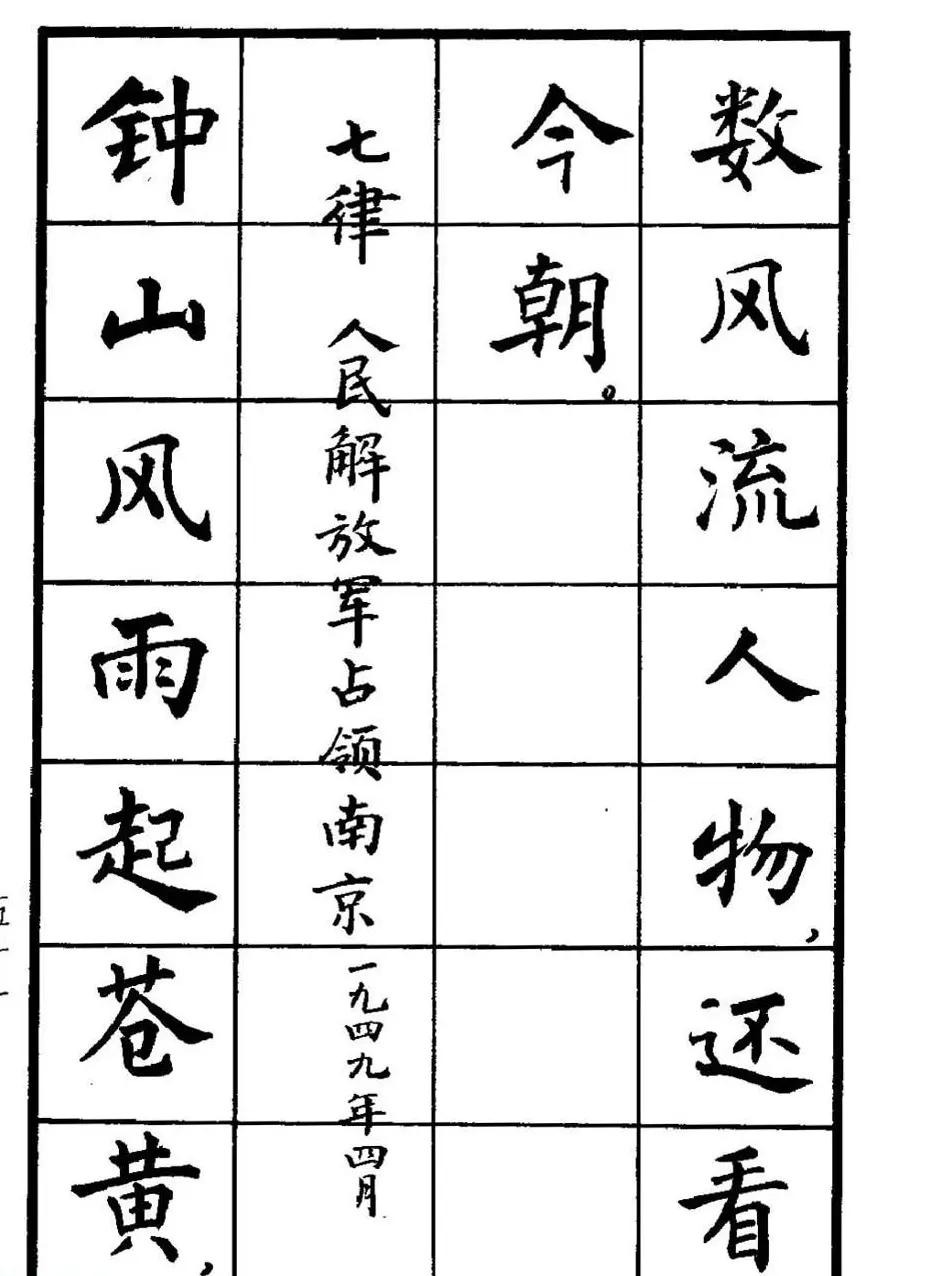 数风流人物，还看
今朝。
七律 人民解放军占领南京 一九四九年四月
钟山风雨起苍黄，